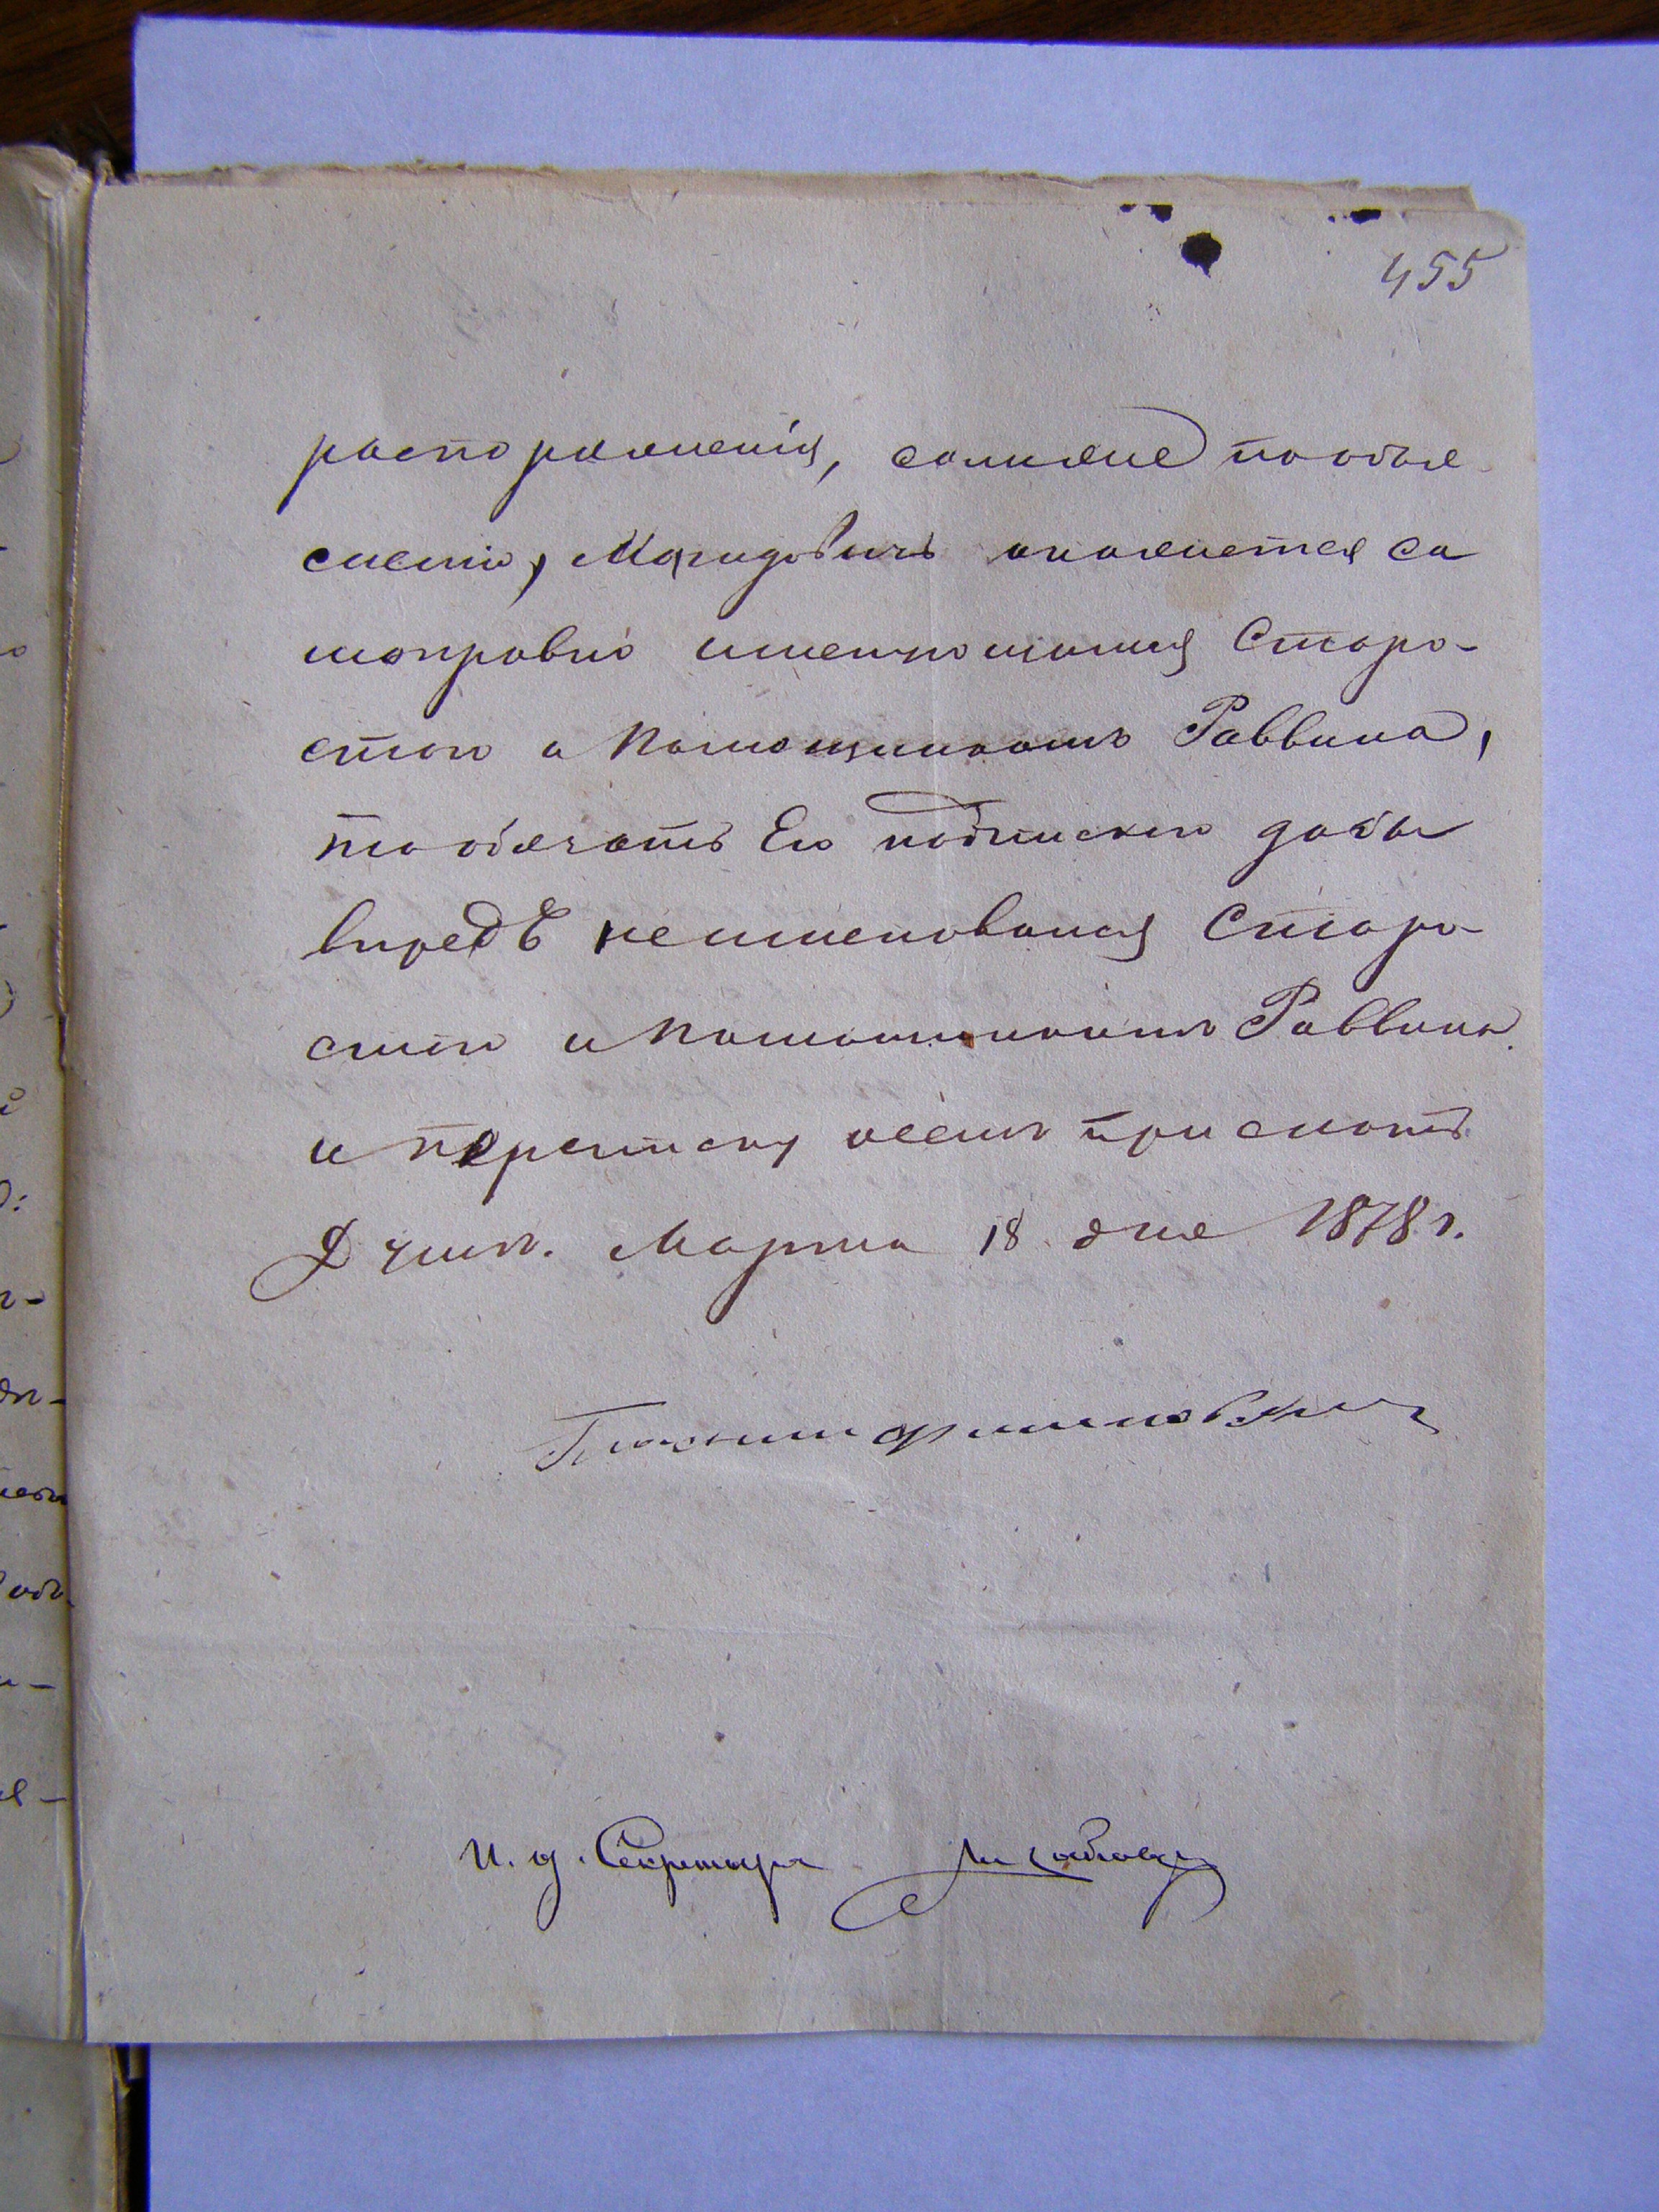 455
распоряженія, самъже пообъя
сненію, Магидовичъ окажется са
моправно именующимся Старо-
стою и Помощникомъ Раввина,
то обязать Его подпискою дабы
впредь неименовался Старо-
стою и Помощникомъ Раввина
и переписку осемъ прислать.
Думъ. Марта 18 дня 1878 г.
И. д. Секретаря